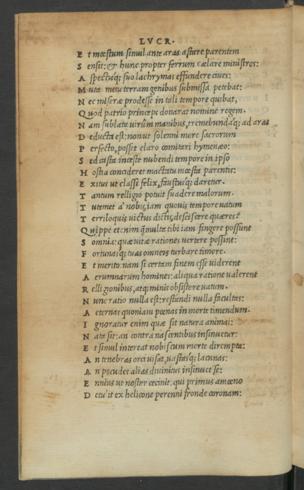 LVCR.
E t mœstum simul ante aras astare parentem
S ensit: & hunc propter ferrum cælare ministros:
A spectuq; suo lachrymas effundere ciueis:
M uta metu terram genibus submissa petebat:
N ec miseræ prodesse in tali tempore quibat,
Q uod patrio princeps donarat nomine regem.
N am sublata uirûm manibus, tremebundaq; ad aras
D educta est: non ut solenni more sacrorum
P erfecto, posset claro comitari hymenæo:
S ed casta inceste nubendi tempore in ipso
H ostia concideret mactatu mœsta parentis:
E xitus ut classi felix, faustusq; daretur.
T antum relligio potuit suadere malorum.
T utemet a' nobis iam quouis tempore uatum
T erriloquis uictus dictis, desciscere quæres?
Q uippe etenim quàm multa tibi iam fingere possunt
S omnia: quæ uitæ rationes uertere possint:
F ortunasq; tuas omneis turbare timore.
E t merito. nam si certam finem esse uiderent
A erumnarum homines: aliqua ratione ualerent
R elligionibus, atq; minis obsistere uatum.
N unc ratio nulla est: restandi nulla facultas:
A eternas quoniam pœnas in morte timendum.
I gnoratur enim quæ sit natura animai:
N ata sit: an contra nascentibus insinuetur:
E t simul intereat nobiscum morte dirempta:
A n tenebras orci uisat, uastasq; lacunas:
A n pecudes alias diuinitus insinuet se:
E nnius ut noster cecinit, qui primus amœno
D etulit ex helicone perenni fronde coronam: